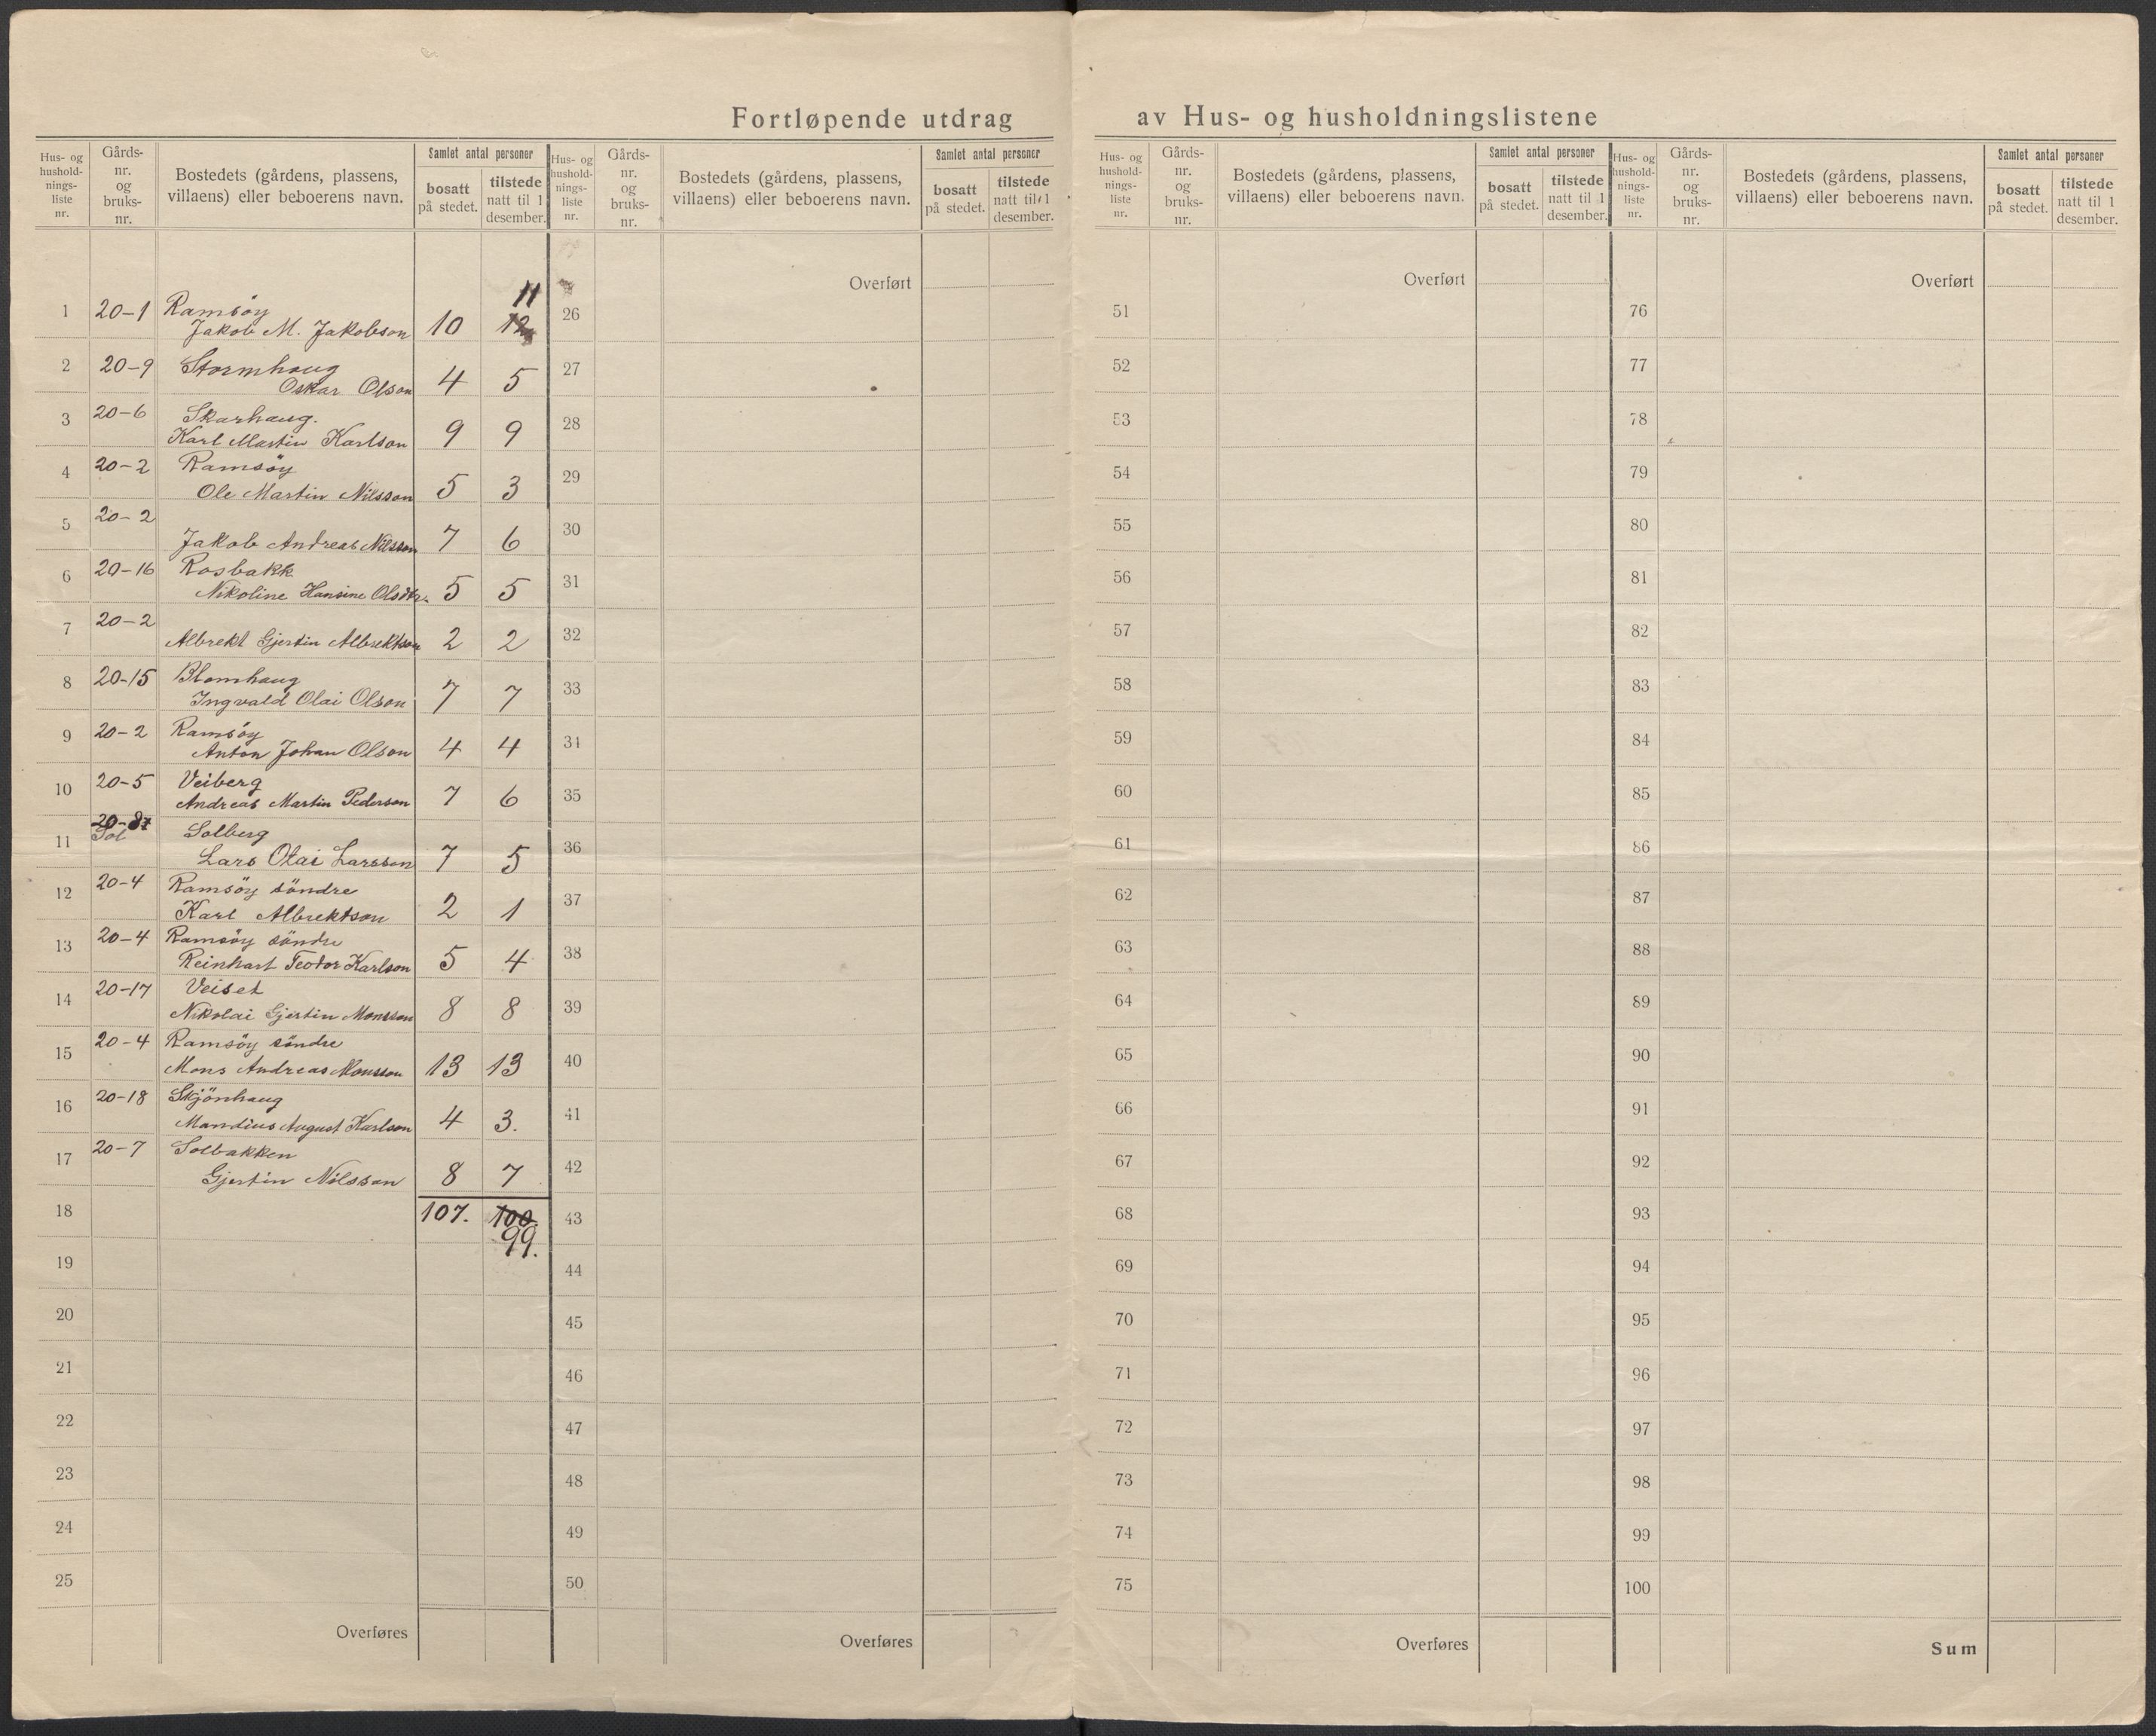 Fortløpende utdrag av Hus- og husholdningslistene
Hus- og hushold-nings-liste nr. Gårds-nr. og bruks-nr. Bostedets (gårdens, plassens, villaens) eller beboerens navn. Samlet antal personer bosatt på stedet. tilstede natt til 1 desember.
Hus- og hushold-nings-liste nr. Gårds-nr. og bruks-nr. Bostedets (gårdens, plassens, villaens) eller beboerens navn. Samlet antal personer bosatt på stedet. tilstede natt til 1 desember.
Hus- og hushold-nings-liste nr. Gårds-nr. og bruks-nr. Bostedets (gårdens, plassens, villaens) eller beboerens navn. Samlet antal personer bosatt på stedet. tilstede natt til 1 desember.
Hus- og hushold-nings-liste nr. Gårds-nr. og bruks-nr. Bostedets (gårdens, plassens, villaens) eller beboerens navn. Samlet antal personer bosatt på stedet. tilstede natt til 1 desember.
11
1 20-1 Ramsöy
Jakob M. Jakobson 10 12
2 20-9 Stormhaug
Oskar Olson 4 5
3 20-6 Skarhaug.
Karl Martin Karlson 9 9
4 20-2 Ramsöy
Ole Martin Nilsson 5 3
5 20-2
Jakob Andreas Nilsson 7 6
6 20-16 Rosbakk
Nikoline Hansine Olsdtr. 5 5
7 20-2
Albrekt Gjertin Albrektson 2 2
8 20-15 Blomhaug
Ingvald Olai Olson 7 7
9 20-2 Ramsöy
Anton Johan Olson 4 4
10 20-5 Veiberg
Andreas Martin Pederson 7 6
11 20-8 Solberg
Sol
Lars Olai Larsson 7 5
12 20-4 Ramsöy söndre
Karl Albrektson 2 1
13 20-4 Ramsöy söndre
Reinhart Teodor Karlson 5 4
14 20-17 Veiset
Nikolai Gjertin Monsson 8 8
15 20-4 Ramsöy söndre
Mons Andreas Monsson 13 13
16 20-18 Skjönhaug
Mandius August Karlson 4 3.
17 20-7 Solbakken
Gjertin Nilsson 8 7
18 107. 100.
99.
19
20
21
22
23
24
25
Overføres
Overført
26
27
28
29
30
31
32
33
34
35
36
37
38
39
40
41
42
43
44
45
46
47
48
49
50
Overføres
Overført
51
52
53
54
55
56
57
58
59
60
61
62
63
64
65
66
67
68
69
70
71
72
73
74
75
Overføres
Overført
76
77
78
79
80
81
82
83
84
85
86
87
88
89
90
91
92
93
94
95
96
97
98
99
100
Sum